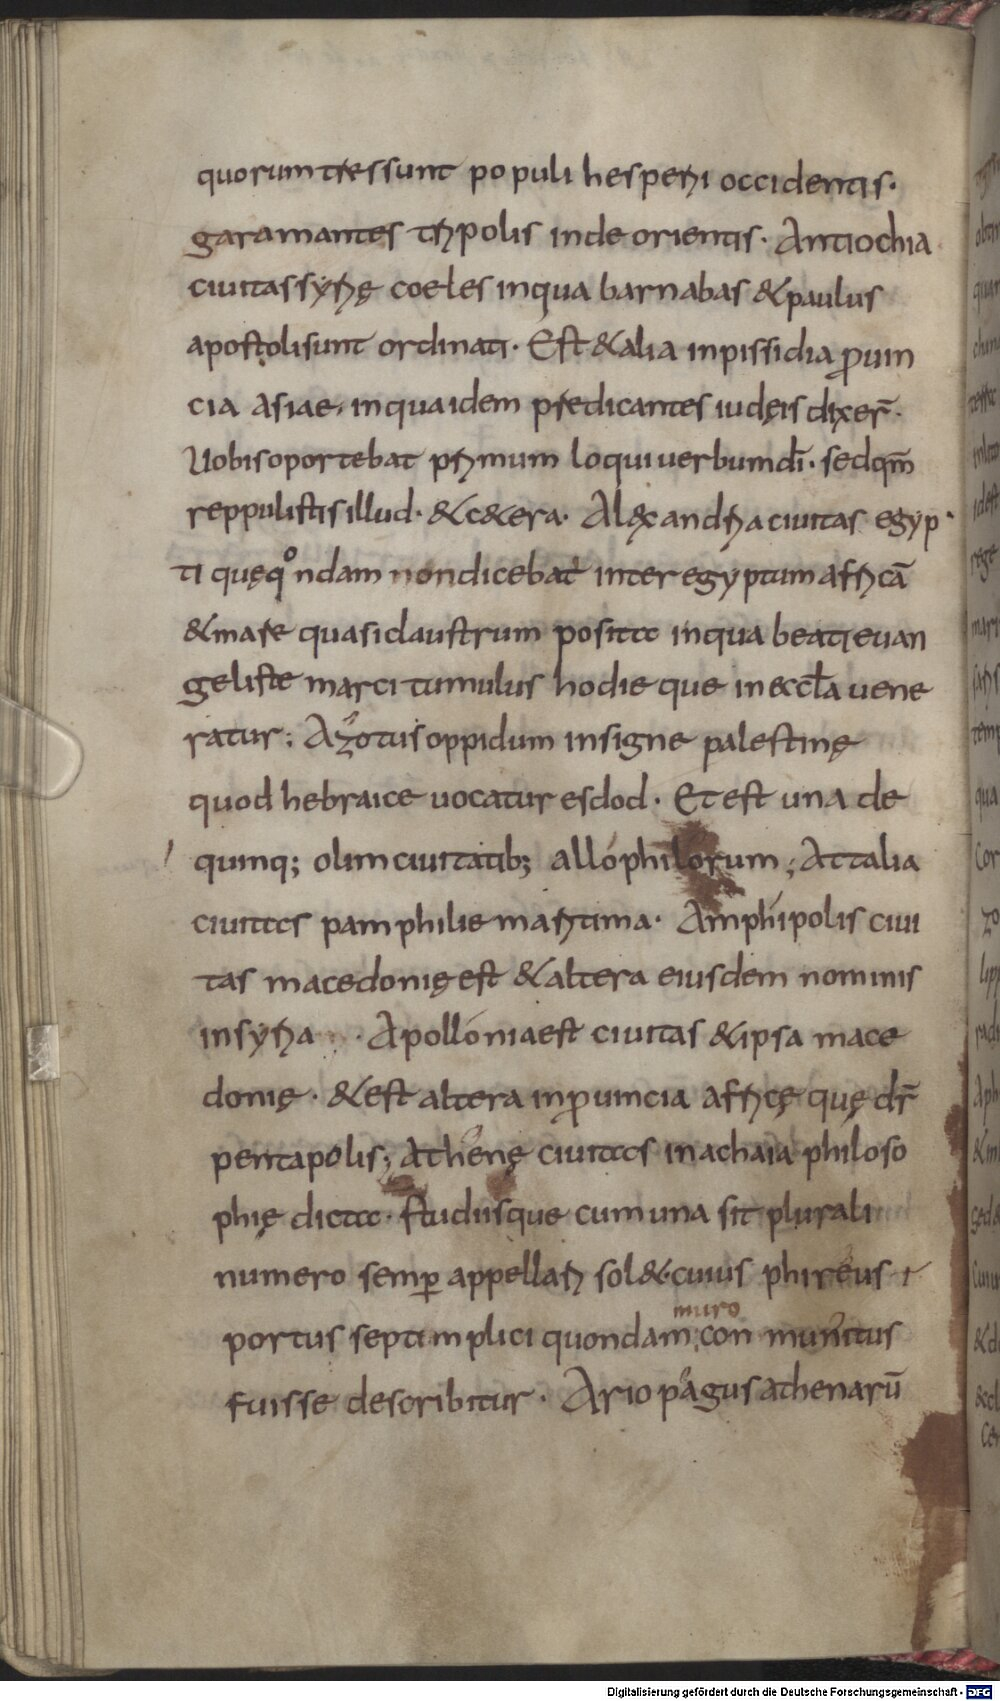 quorum tres sunt populi hesperii occidentis·
garamantes tripolis inde orientis· Antiochia
ciuitas syrię coeles in qua barnabas & paulus
apostoli sunt ordinati· Est & alia in pissidia ꝓuin
cia asiae, in qua idem predicantes iudęis dixer̄·
Uobis oportebat primum loqui uerbum dī· sed qm̄
reppulistis illud· & c&era· Alęxandria ciuitas egyp
ti quę qͦndam non dicebat̄ inter egyptum africā
& mare quasi claustrum posita in qua beati euan
geliste marci tumulus hodieque in eccła uene
ratur; Azotus oppidum insigne palestinę
quod hebraice uocatur esdod· Et est una de
quinq; olim ciuitatib; allophilorum; Attalia
ciuitas pamphilie maritima· Amphipolis ciui
tas macedonię est & altera eiusdem nominis
in syria · Apollonia est ciuitas & ipsa mace
donię· & est altera in ꝓuincia africę quę dr̄
pentapolis; Athenę ciuitas in achaia philoso
phię dicata· studiisque cum una sit plurali
numero semꝑ appellari sol&· cuius phireus
portus septimplici quondam con munitus
muro
fuisse describitur· Ariopagus athenarū
Digitalisierung gefördert durch die Deutsche Forschungsgemeinschaft - DFG